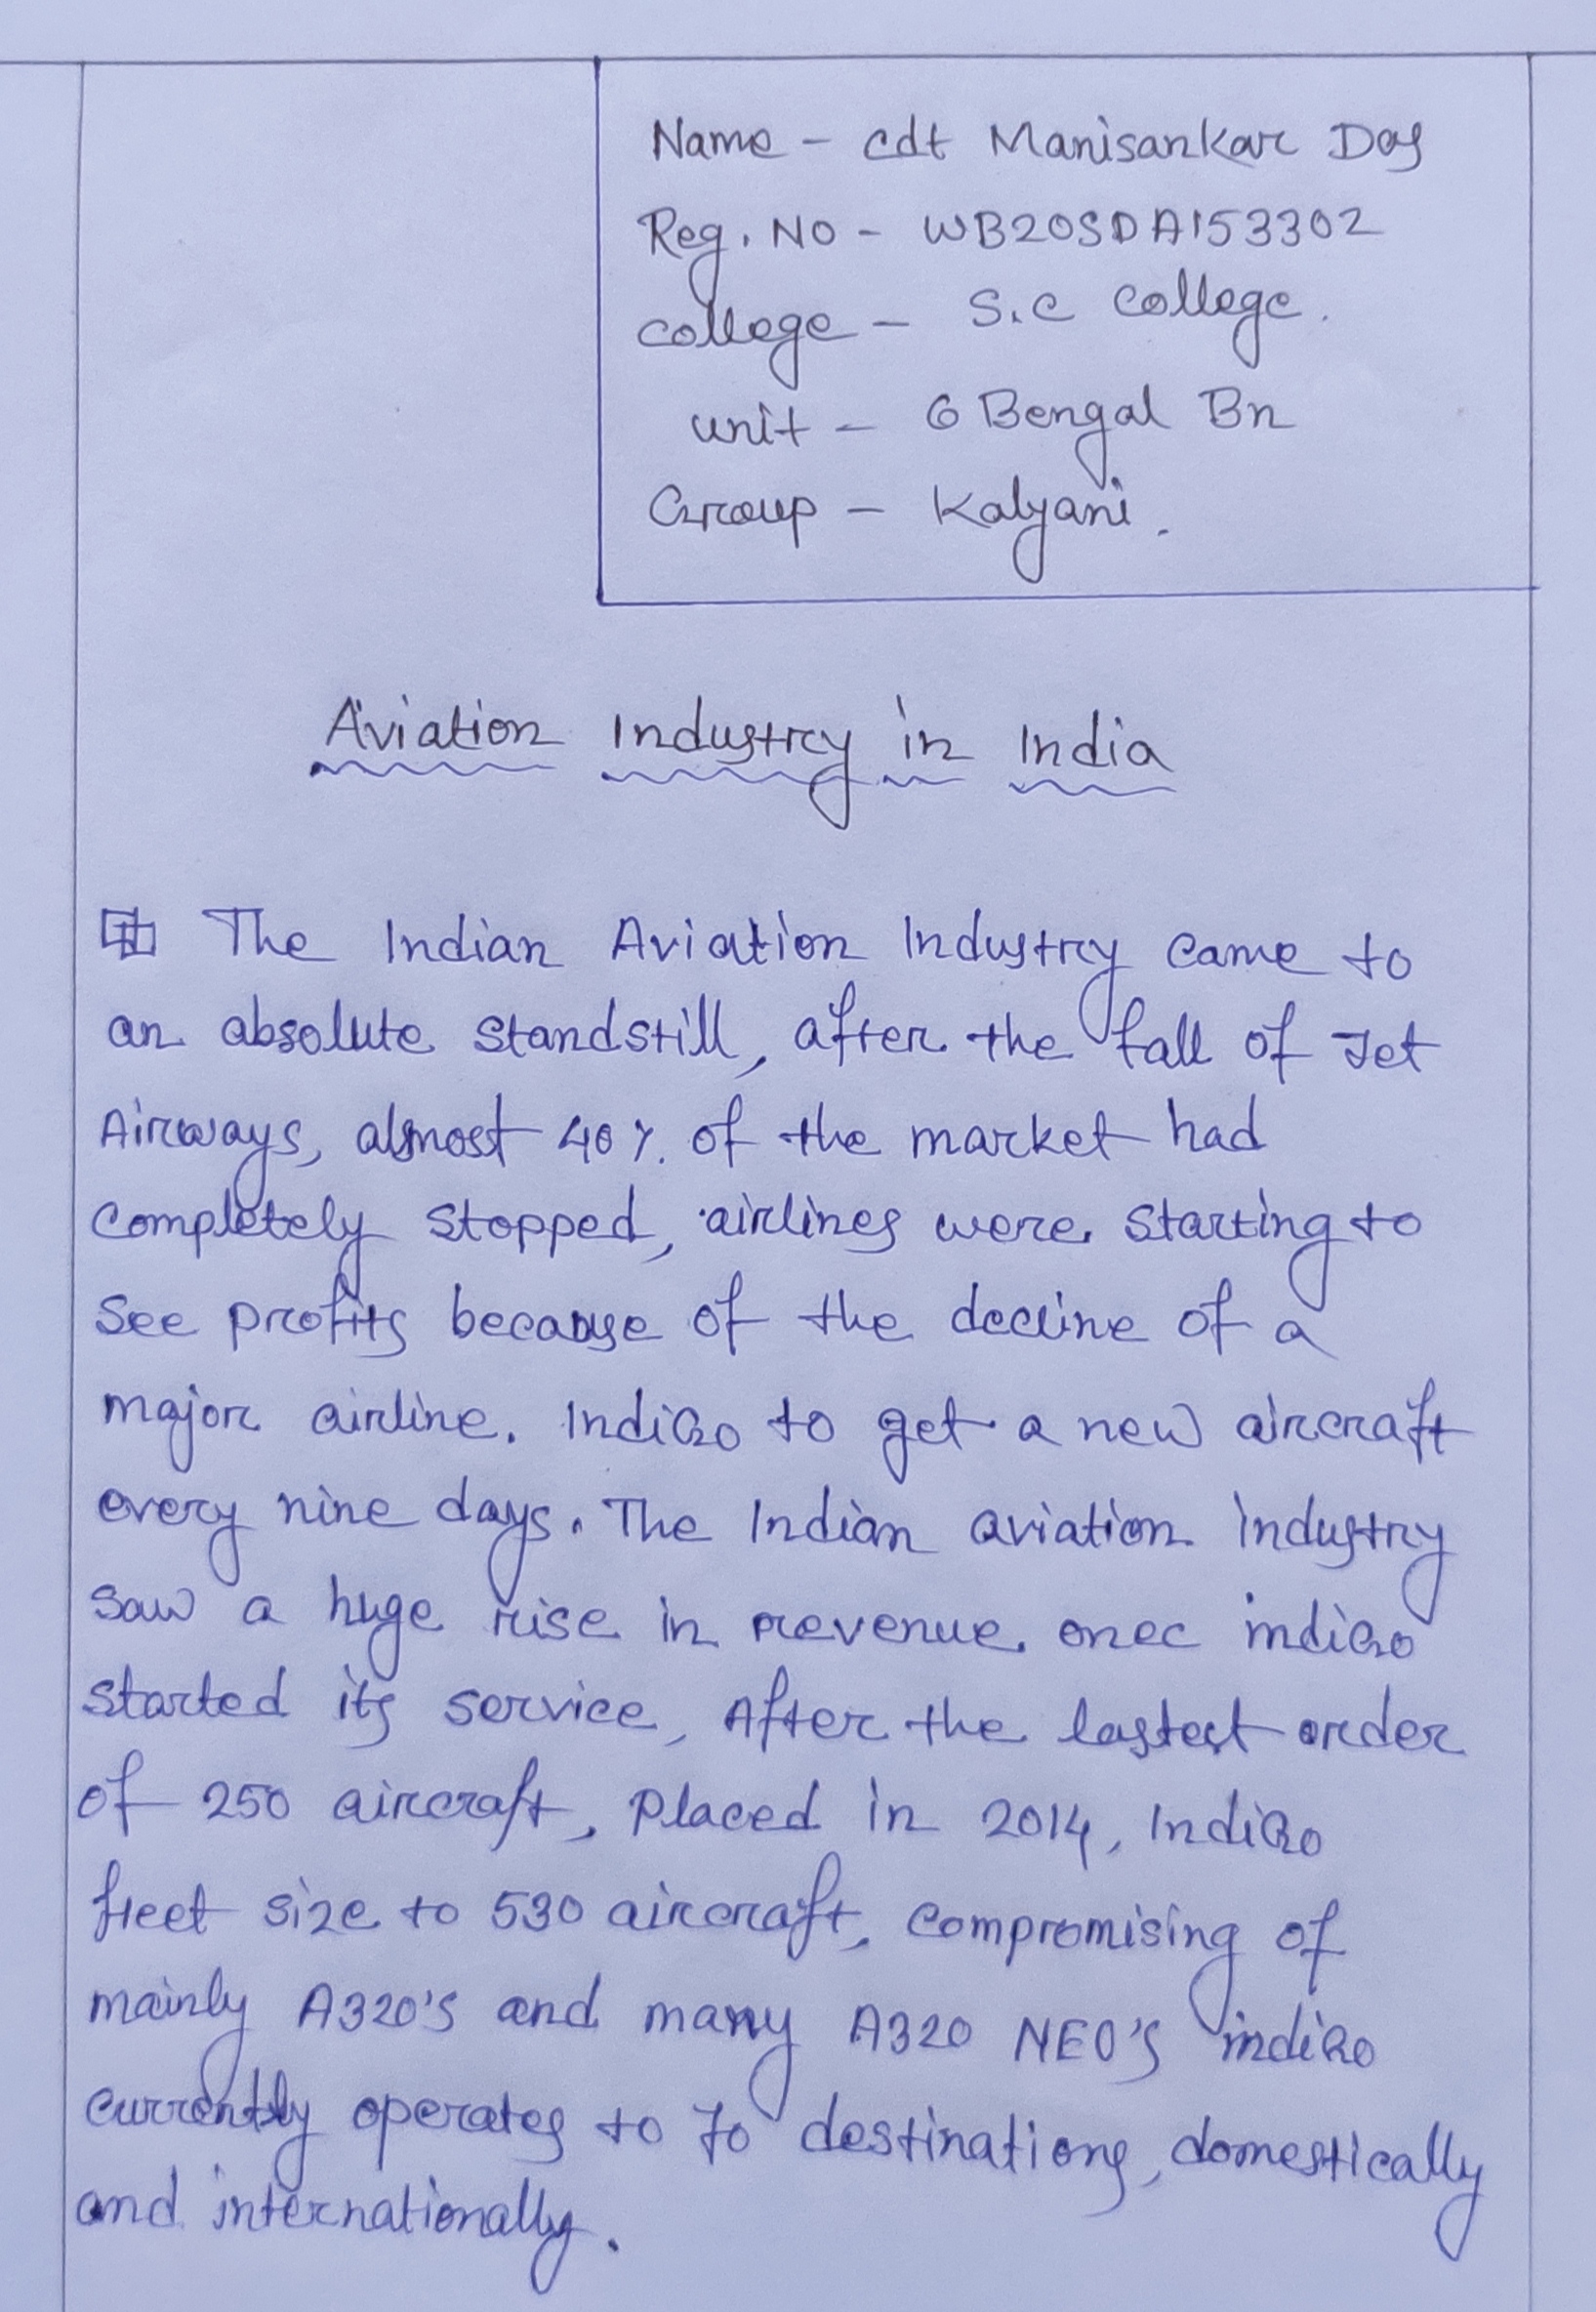 Name - cdt Manisankar Das
Reg. No - WB20SDA153302
college - S.C College.
unit - 6 Bengal Bn
Group - Kalyani.
Aviation Industry in India
The Indian Aviation Industry came to
an absolute standstill, after the fall of Jet
Airways, almost 40%. of the market had
completely stopped, airlines were starting to
see profits because of the decline of a
major airline. IndiGo to get a new aircraft
every nine days. The Indian aviation industry
saw a huge rise in revenue. onec indiGo
started its service, After the lastest order
of 250 aircraft, Placed in 2014, IndiGo
fleet size to 530 aircraft, compromising of
mainly A320's and many A320 NEO's indiGo
currently operates to 70 destinations, domestically
and internationally.